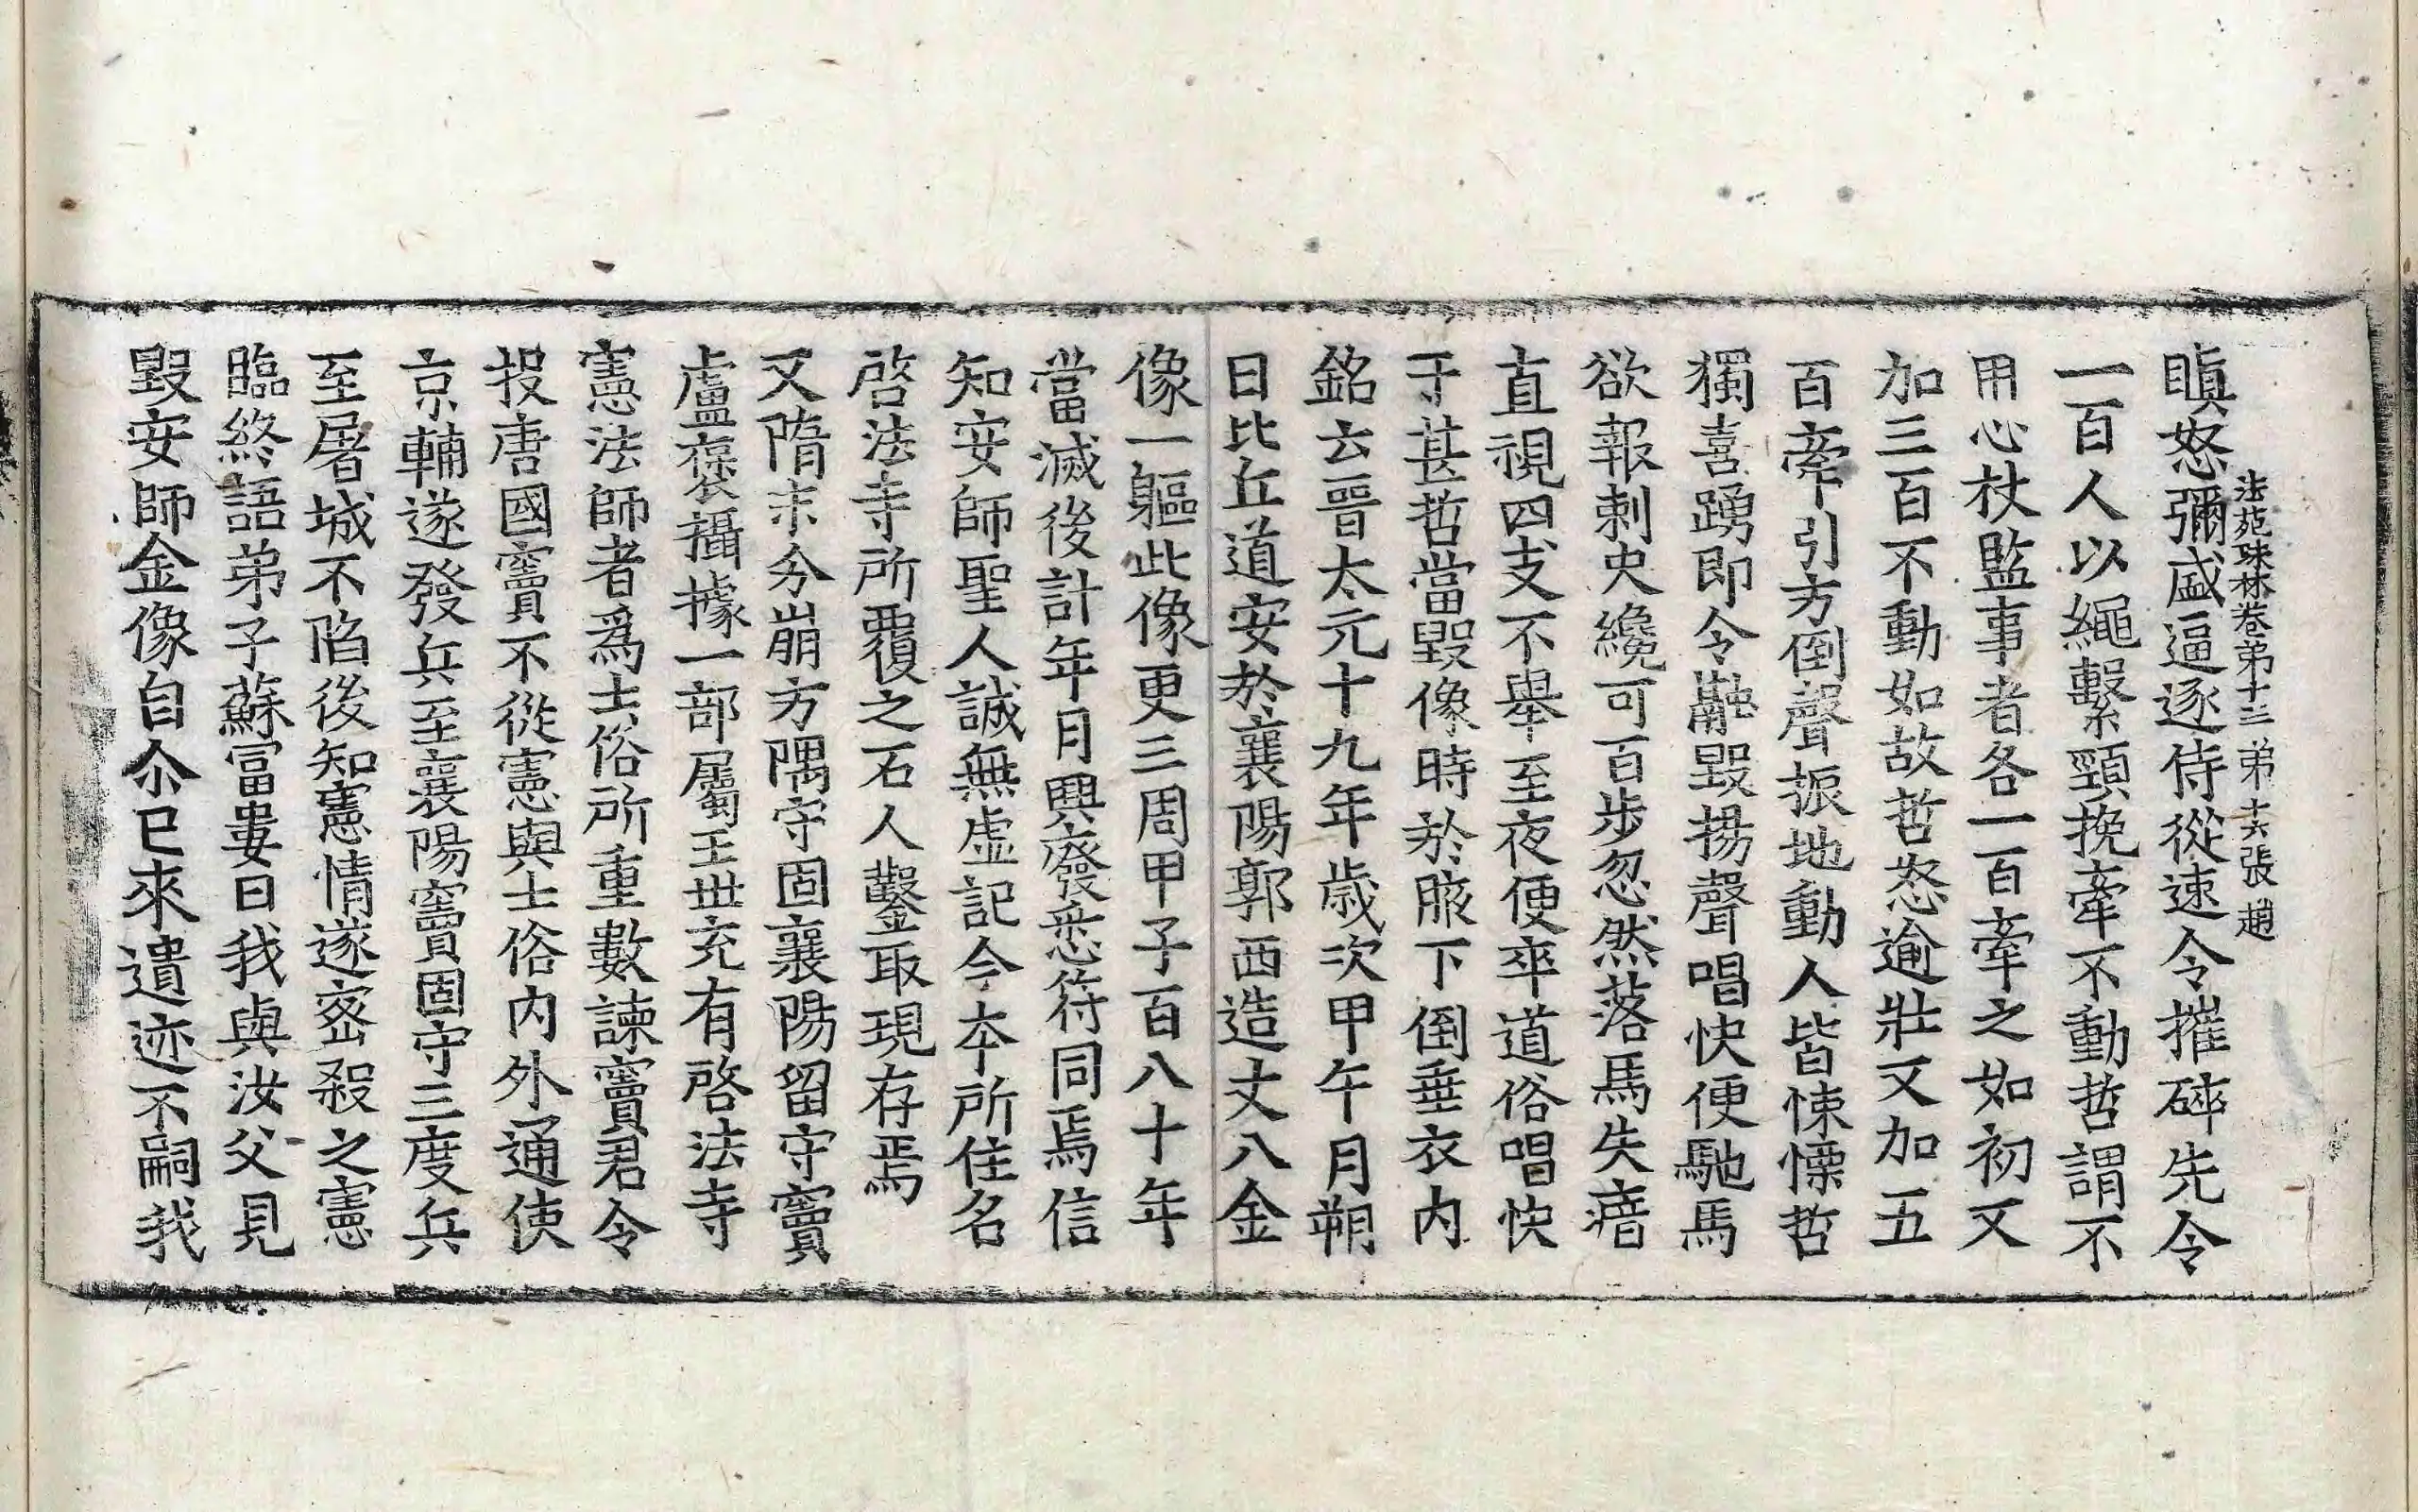 瞋怒彌盛逼逐侍從速令摧碎先令
法苑珠林卷苐十三 苐十六張 趙
一百人以繩繫頸挽牽不動哲謂不
用心杖監事者各一百牽之如初又
加三百不動如故哲怒逾壯又加五
百牽引方倒聲振地動人皆悚慄哲
獨喜踴即令融毀揚聲唱快便馳馬
欲報刺史纔可百步忽然落馬失瘖
直視四支不舉至夜便卒道俗唱快
于甚哲當毀像時於腋下倒垂衣内
銘云晉太元十九年歲次甲午月朔
日比丘道安於襄陽郭西造丈八金
像一軀此像更三周甲子百八十年
當滅後計年月興廢悉符同焉信
知安師聖人誠無虛記今夲所住名
啓法寺所覆之石人鑿取現存焉
又隋末分崩方隅守固襄陽留守竇
盧褒攝據一部屬王丗充有啓法寺
憲法師者爲士俗所重數諫竇君令
投唐國竇不從憲與士俗内外通使
京輔遂發兵至襄陽竇固守三度兵
至屠城不陷後知憲情遂宻殺之憲
臨終語弟子蘇富婁曰我與汝父見
毀安師金像自尒已來遺迹不嗣我